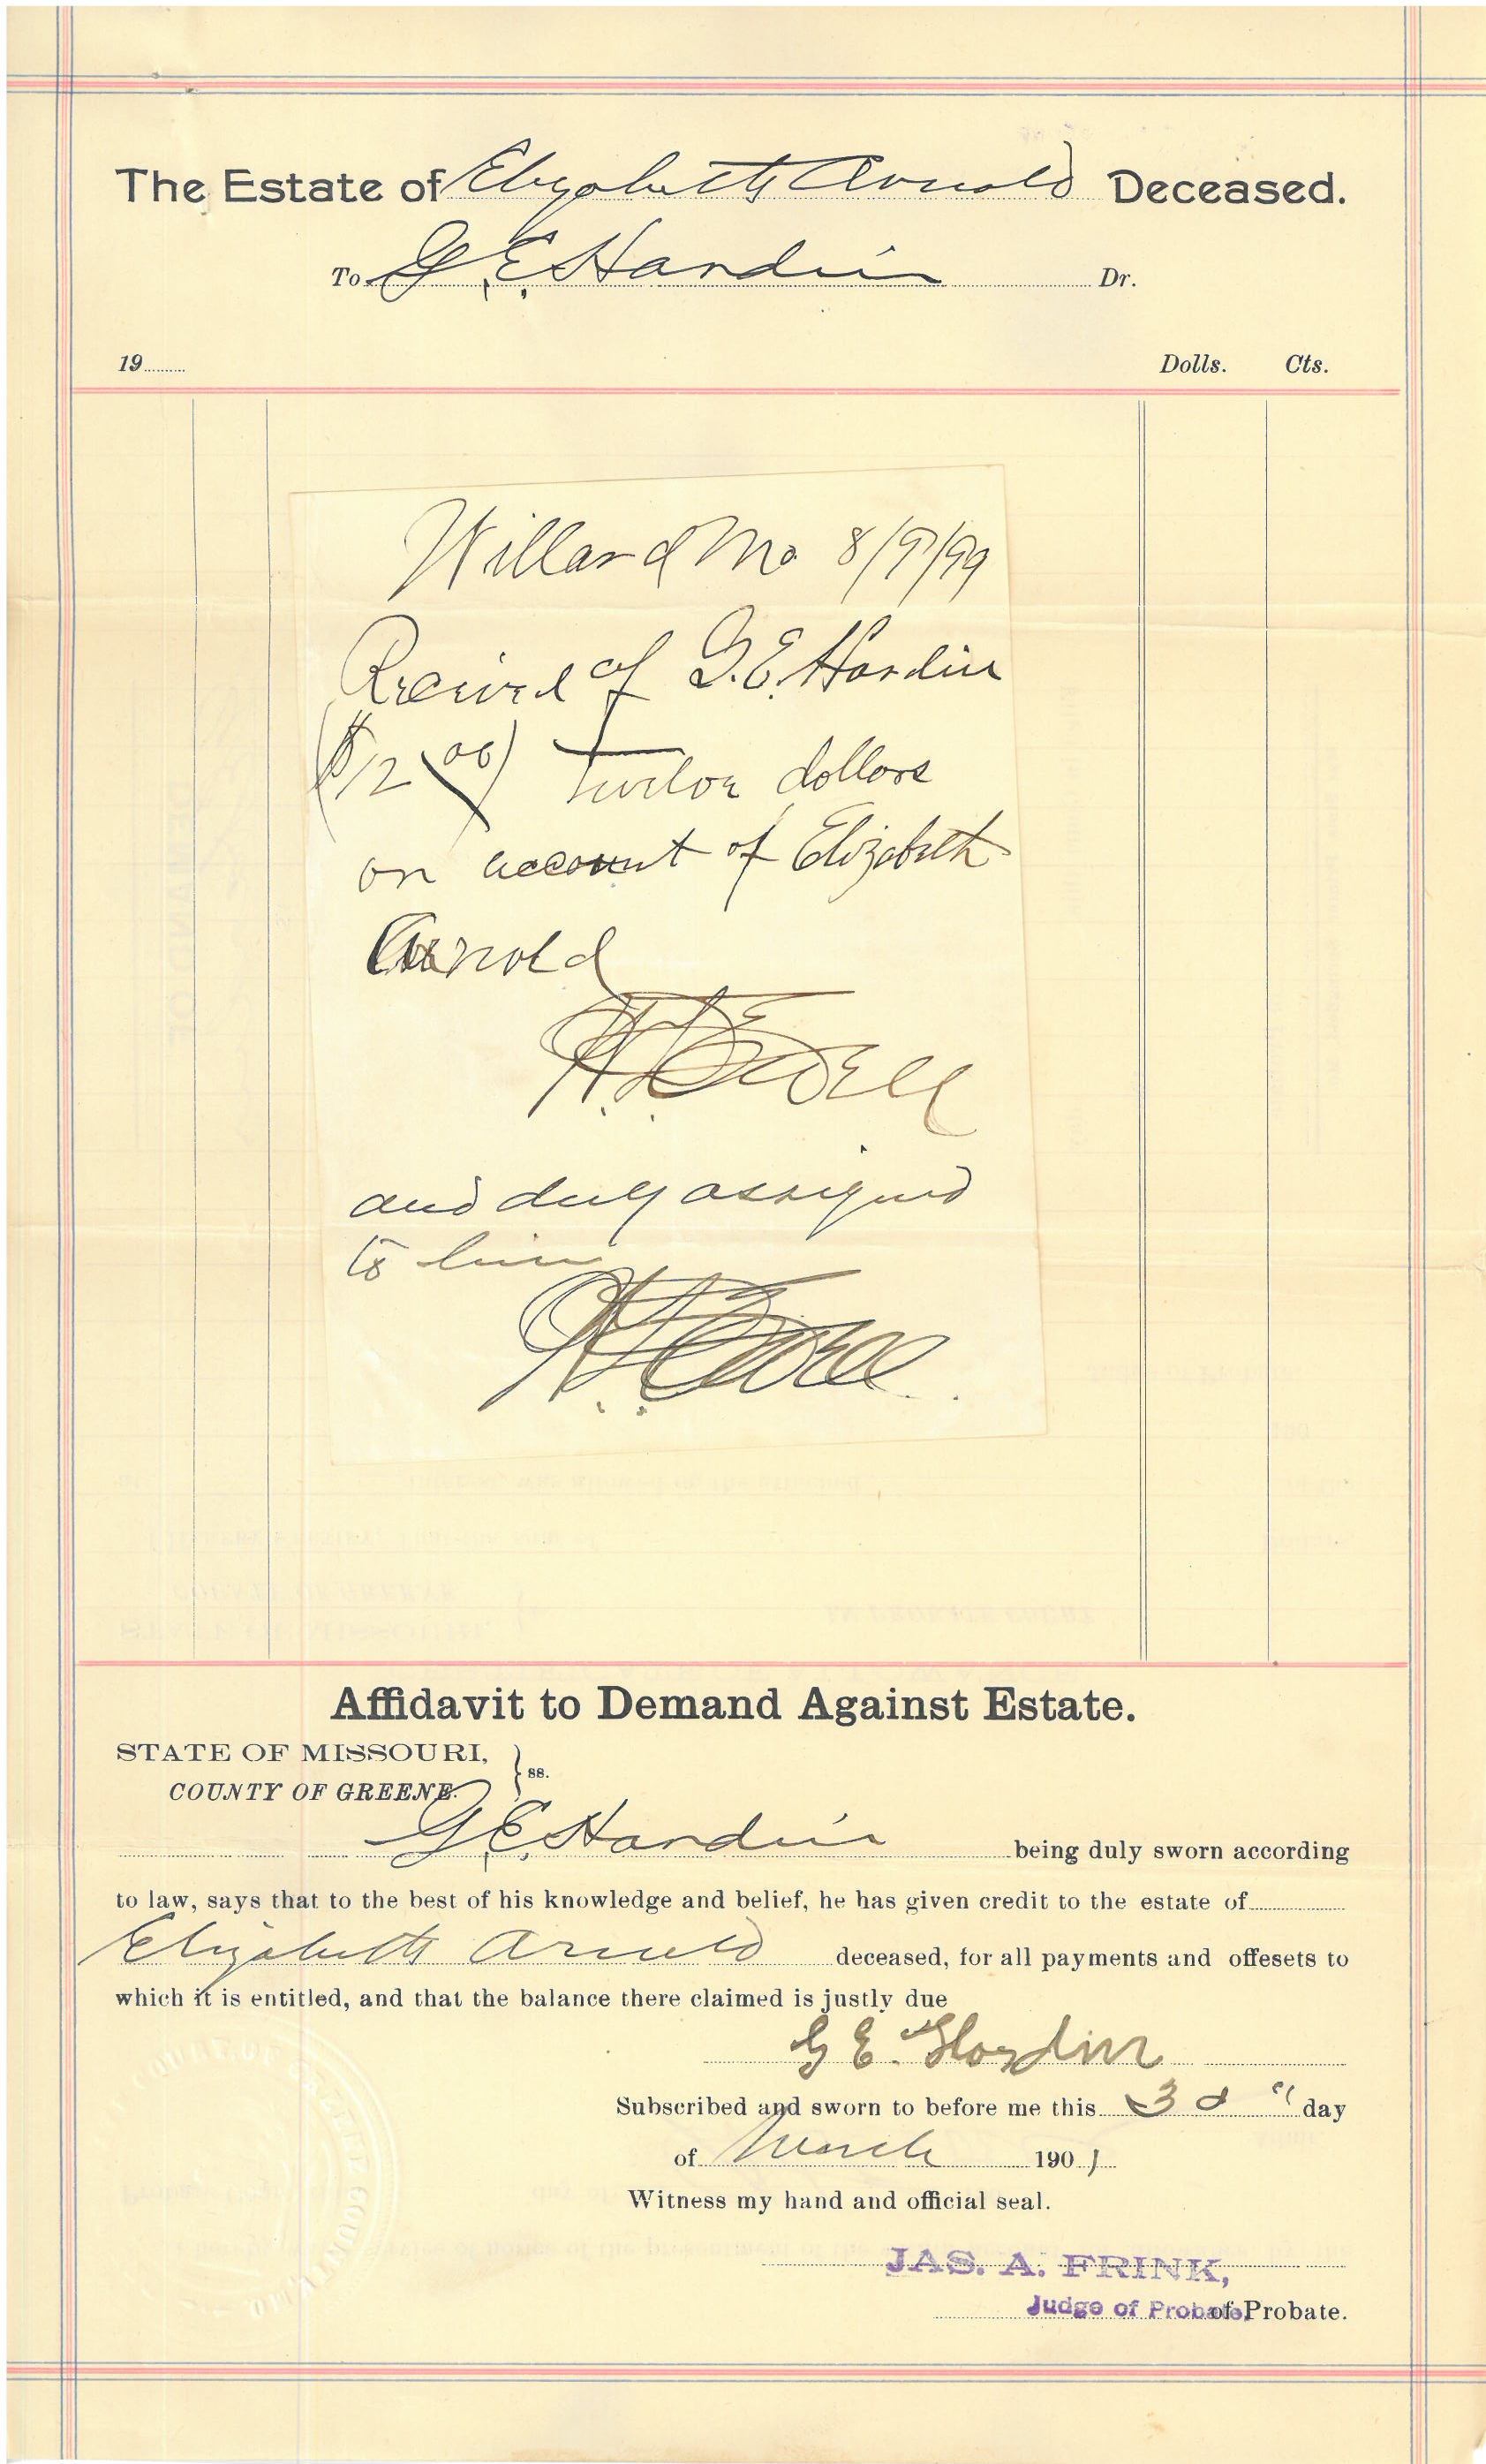 The Estate of Elizabeth Arnold Deceased.
To G. E. Hardin Dr.
19 Dolls. Cts.
Willard Mo 8/9/99
Received of G. E. Hardin
($12.00) Twelve dollars
on account of Elizabeth
Arnold
and duly assigned
to him
Affidavit to Demand Against Estate.
STATE OF MISSOURI,
COUNTY OF GREENE. } ss.
G. E. Hardin being duly sworn according
to law, says that to the best of his knowledge and belief, he has given credit to the estate of
Elizabeth Arnold deceased, for all payments and offesets to
which it is entitled, and that the balance there claimed is justly due
G E. Hardin
Subscribed and sworn to before me this 3d " day
of March 1901
Witness my hand and official seal.
JAS. A. FRINK,
Judge of Probate, of Probate.